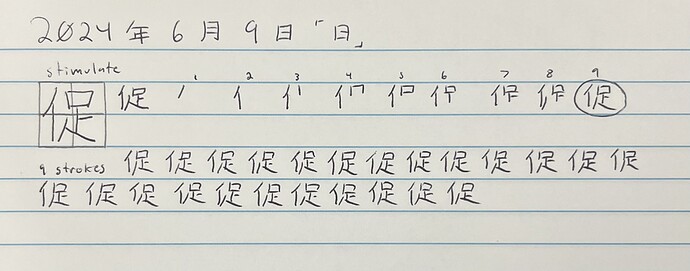 2024 年 6 月 9 日 「日」
stimulate 1 2 3 4 5 6 7 8 9
促 促 ノ 亻 促
9 strokes 促 促 促 促 促 促 促 促 促 促 促 促 促
促 促 促 促 促 促 促 促 促 促 促